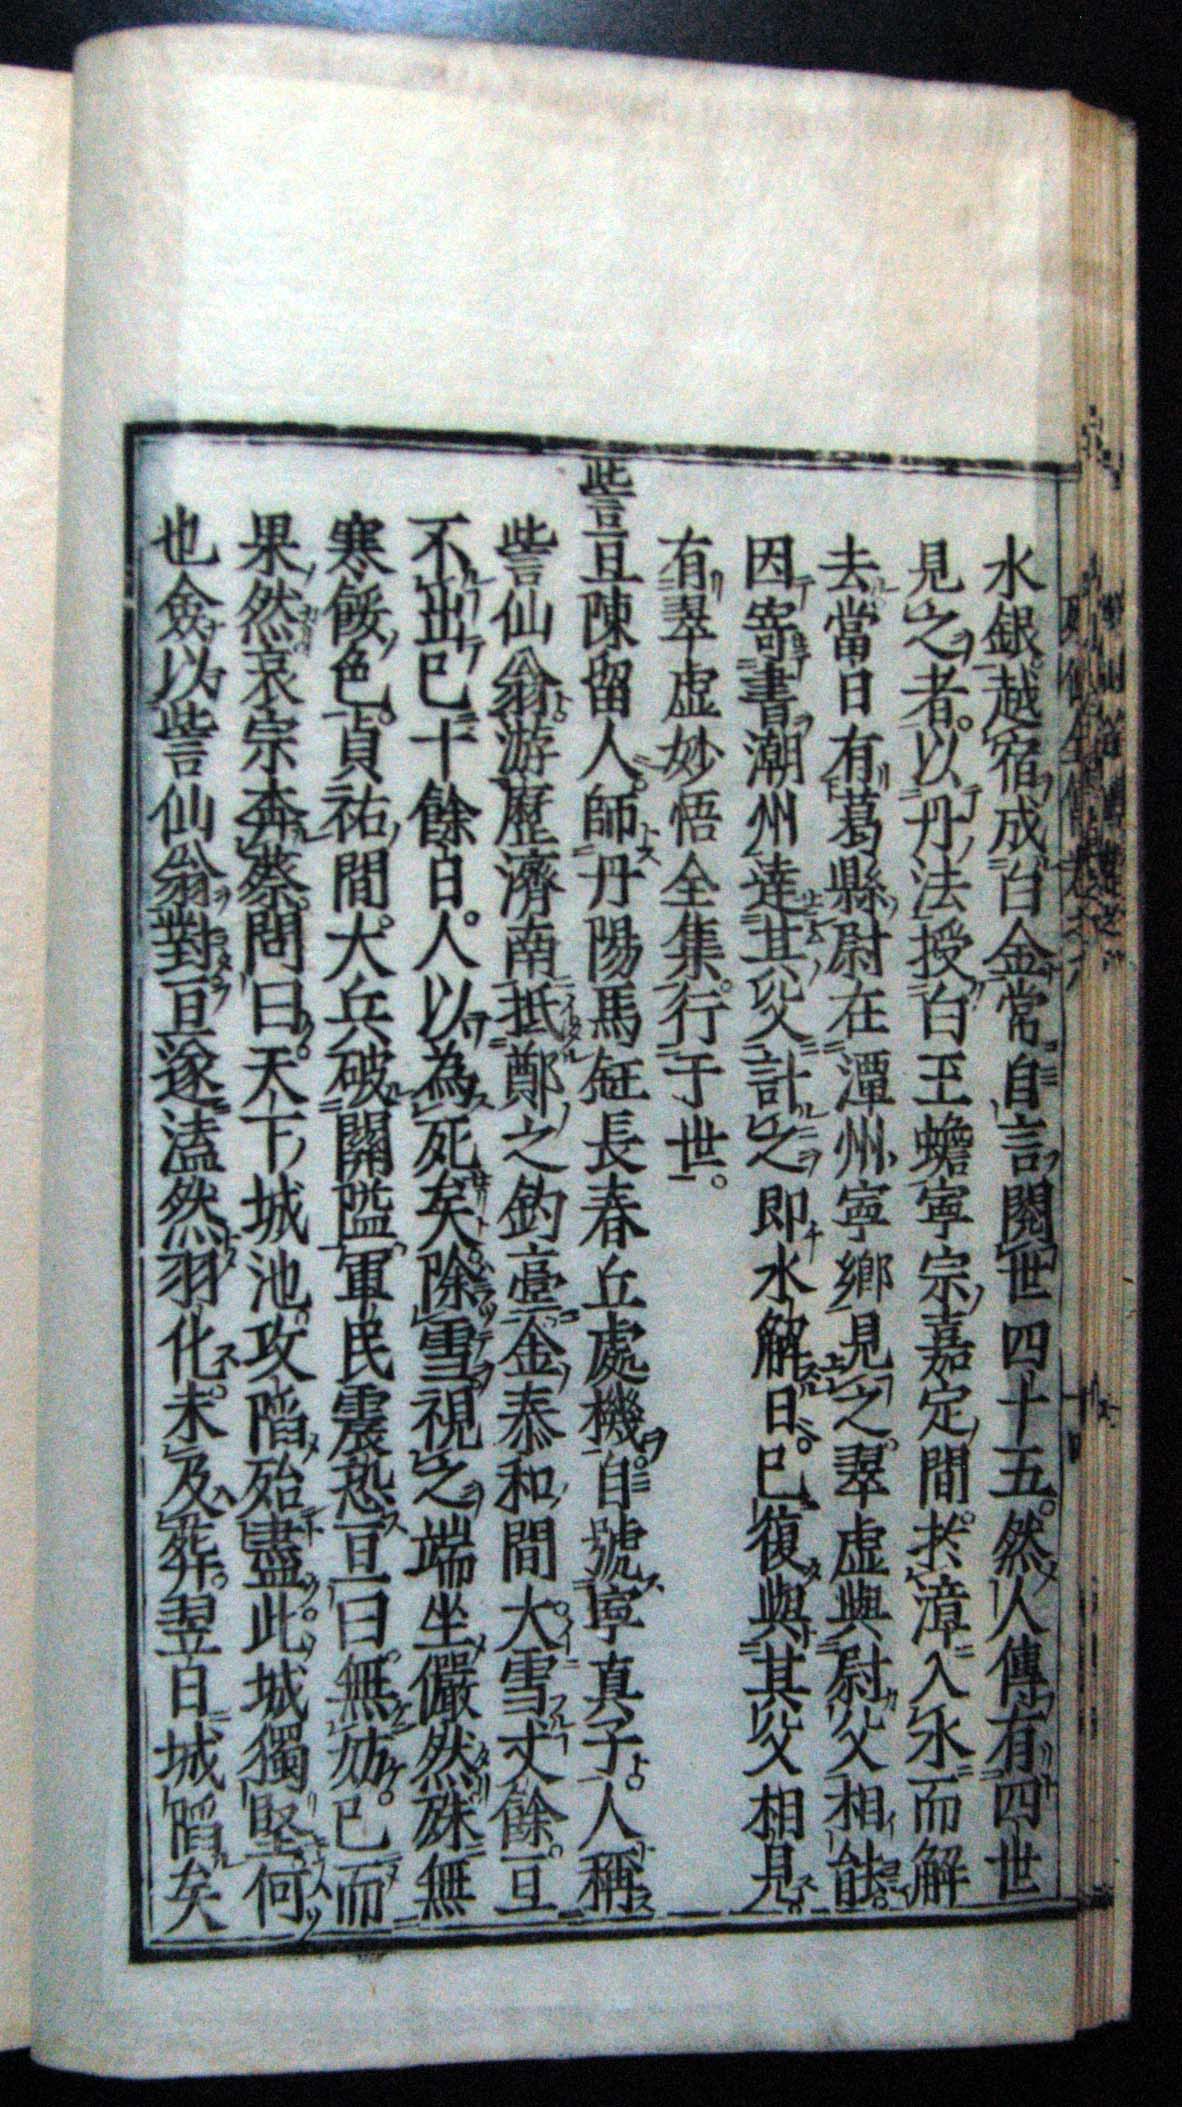 水銀越宿成白金常自言閱世四十五然人傳有四世
見之者以丹法授白玉蟾寧宗嘉定間於漳入水而解
去當日有葛縣尉在潭州寧鄉見之翠虛與尉父相
因寄書潮州達其父計之即水解日已復與其父相見
有翠虛妙悟全集行于世
訾亘陳留人師丹陽馬鈺長春丘處機自號寧真子人稱
訾仙翁游歷濟南抵鄭之釣臺金泰和間大雪丈餘亘
不出已十餘日人以為死矣除雪視之端坐儼然殊無
寒餒色貞祐間大兵破關隘軍民震恐亘曰無妨已而
果然哀宗奔蔡問曰天下城池攻陷殆盡此城獨堅何
也僉以訾仙翁對亘遂溘然羽化未及葬翌日城陷矣